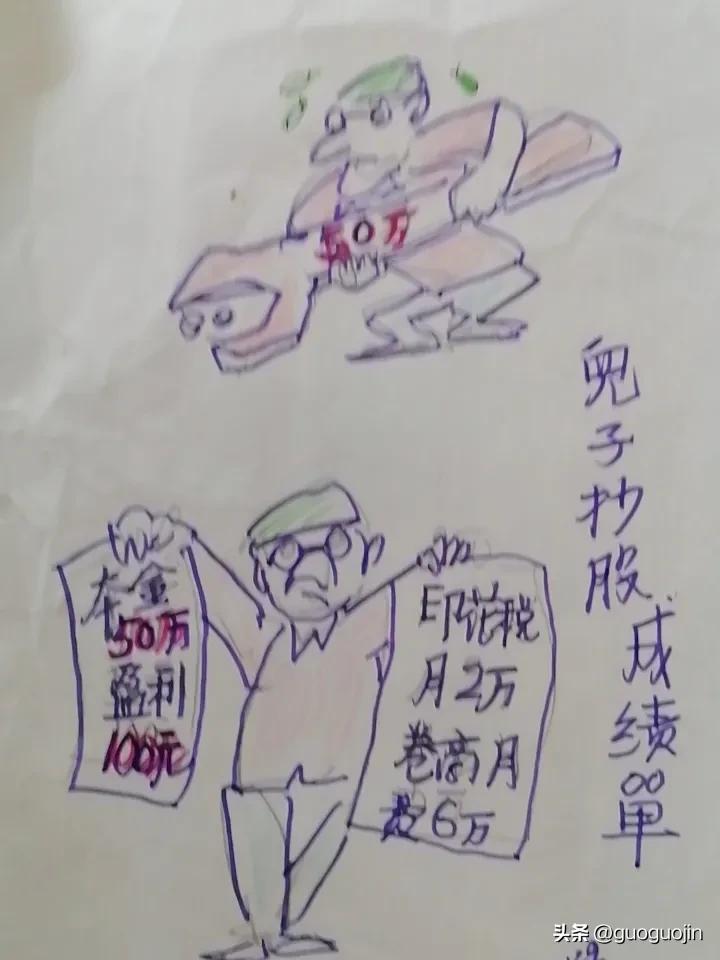 50万
儿子抄股
成绩单
本金
50万
盈利
100元
印花税
月2万
卷商月
费6万
头条 @guoguojin